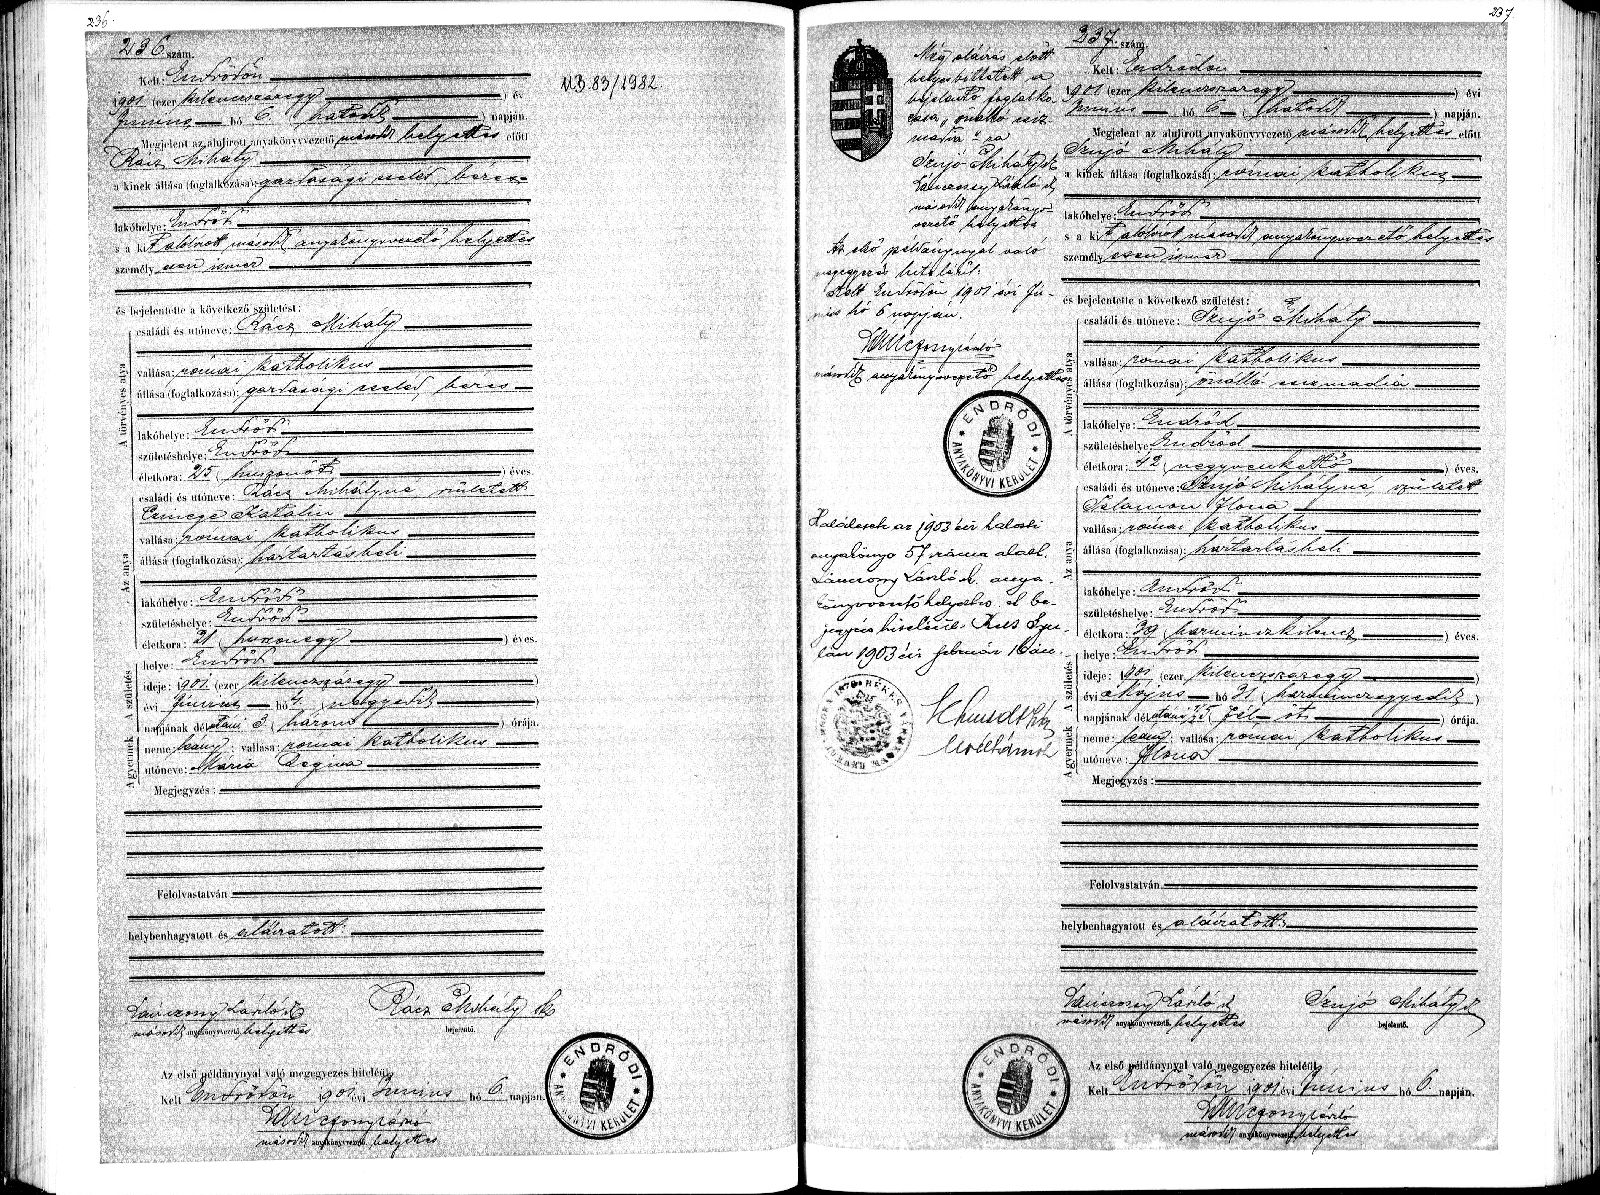 236.
236 szám.
Kelt: Endrődön
1901. (ezer kilenczszázegy ) év
Junius hó 6. (hatodik ) napján.
Megjelent az alulirott anyakönyvvezető második helyettes előtt
Rácz Mihály
a kinek állása (foglalkozása): gazdasági cseléd, béres
lakóhelye: Endrőd
s a kit alolirott második anyakönyvvezető helyettes
személyesen ismer
és bejelentette a következő születést:
A törvényes atya
családi és utóneve: Rácz Mihály
vallása: római katholikus
állása (foglalkozása): gazdasági cseléd, béres
lakóhelye: Endrőd
születéshelye: Endrőd
életkora: 25 (huszonöt ) éves.
Az anya
családi és utóneve: Rácz Mihályné született
Katalin
vallása: római katholikus
állása (foglalkozása): háztartásbeli
lakóhelye: Endrőd
születéshelye: Endrőd
életkora: 21 (huszonegy ) éves.
A születés
helye: Endrőd
ideje: 1901. (ezer kilenczszázegy )
évi Junius hó 4. (negyedik )
napjának délutáni 3 (három ) órája.
A gyermek
neme: leány; vallása: római katholikus
utóneve: Mária
Megjegyzés:
Felolvastatván
helybenhagyatott és aláiratott.
Lánczony László
második anyakönyvvezető helyettes
Rácz Mihály
bejelentő.
Az első példánynyal való megegyezés hiteléül
Kelt Endrődön 1901 évi Junius hó 6. napján.
Lánczony László
második anyakönyvvezető helyettes
ENDRŐDI
ANYAKÖNYVI KERÜLET
MB.83/1982.
237.
237. szám.
Kelt: Endrődön
1901 (ezer kilenczszázegy ) évi
Junius hó 6 (hatodik ) napján.
Megjelent az alulirott anyakönyvvezető második helyettes előtt
Szujó Mihály
a kinek állása (foglalkozása): római katholikus
lakóhelye: Endrőd
s a kit alolirott második anyakönyvvezető helyettes
személyesen ismer
és bejelentette a következő születést:
A törvényes atya
családi és utóneve: Szujó Mihály
vallása: római katholikus
állása (foglalkozása): önálló csizmadia
lakóhelye: Endrőd
születéshelye: Endrőd
életkora: 42 (negyvenkettő ) éves.
Az anya
családi és utóneve: Szujó Mihályné, született
Salamon Ilona
vallása: római katholikus
állása (foglalkozása): háztartásbeli
lakóhelye: Endrőd
születéshelye: Endrőd
életkora: 39 (harminczkilencz ) éves.
A születés
helye: Endrőd
ideje: 1901. (ezer kilenczszázegy )
évi május hó 31 (harminczegyedik )
napjának délutáni (fél öt ) órája.
A gyermek
neme: leány vallása: római katholikus
utóneve: Ilona
Megjegyzés:
Felolvastatván
helybenhagyatott és aláiratott.
Lánczony László
második anyakönyvvezető helyettes
Szujó Mihály
bejelentő.
Az első példánynyal való megegyezés hiteléül
Kelt Endrődön 1901 évi Junius hó 6. napján.
Lánczony László
második anyakönyvvezető helyettes
ENDRŐDI
ANYAKÖNYVI KERÜLET
Még aláirás előtt
helyesbittetett a
bejelentő foglalko-
zása „önálló csiz-
madia"ra
Szujó Mihály
Lánczony László
második anyakönyv-
vezető helyettes
Az első példánynyal való
megegyezés hiteléül:
Kelt Endrődön 1901 évi Jú-
nius hó 6 napján.
Lánczony László
második anyakönyvvezető helyettes
ENDRŐDI
ANYAKÖNYVI KERÜLET
Halálesete az 1903 évi haloti
anyakönyv 57 száma alatt.
Lánczony László anya-
könyvvezető helyettes. A be-
jegyzés hiteléül. Kelt Gyu-
lán 1903 évi február